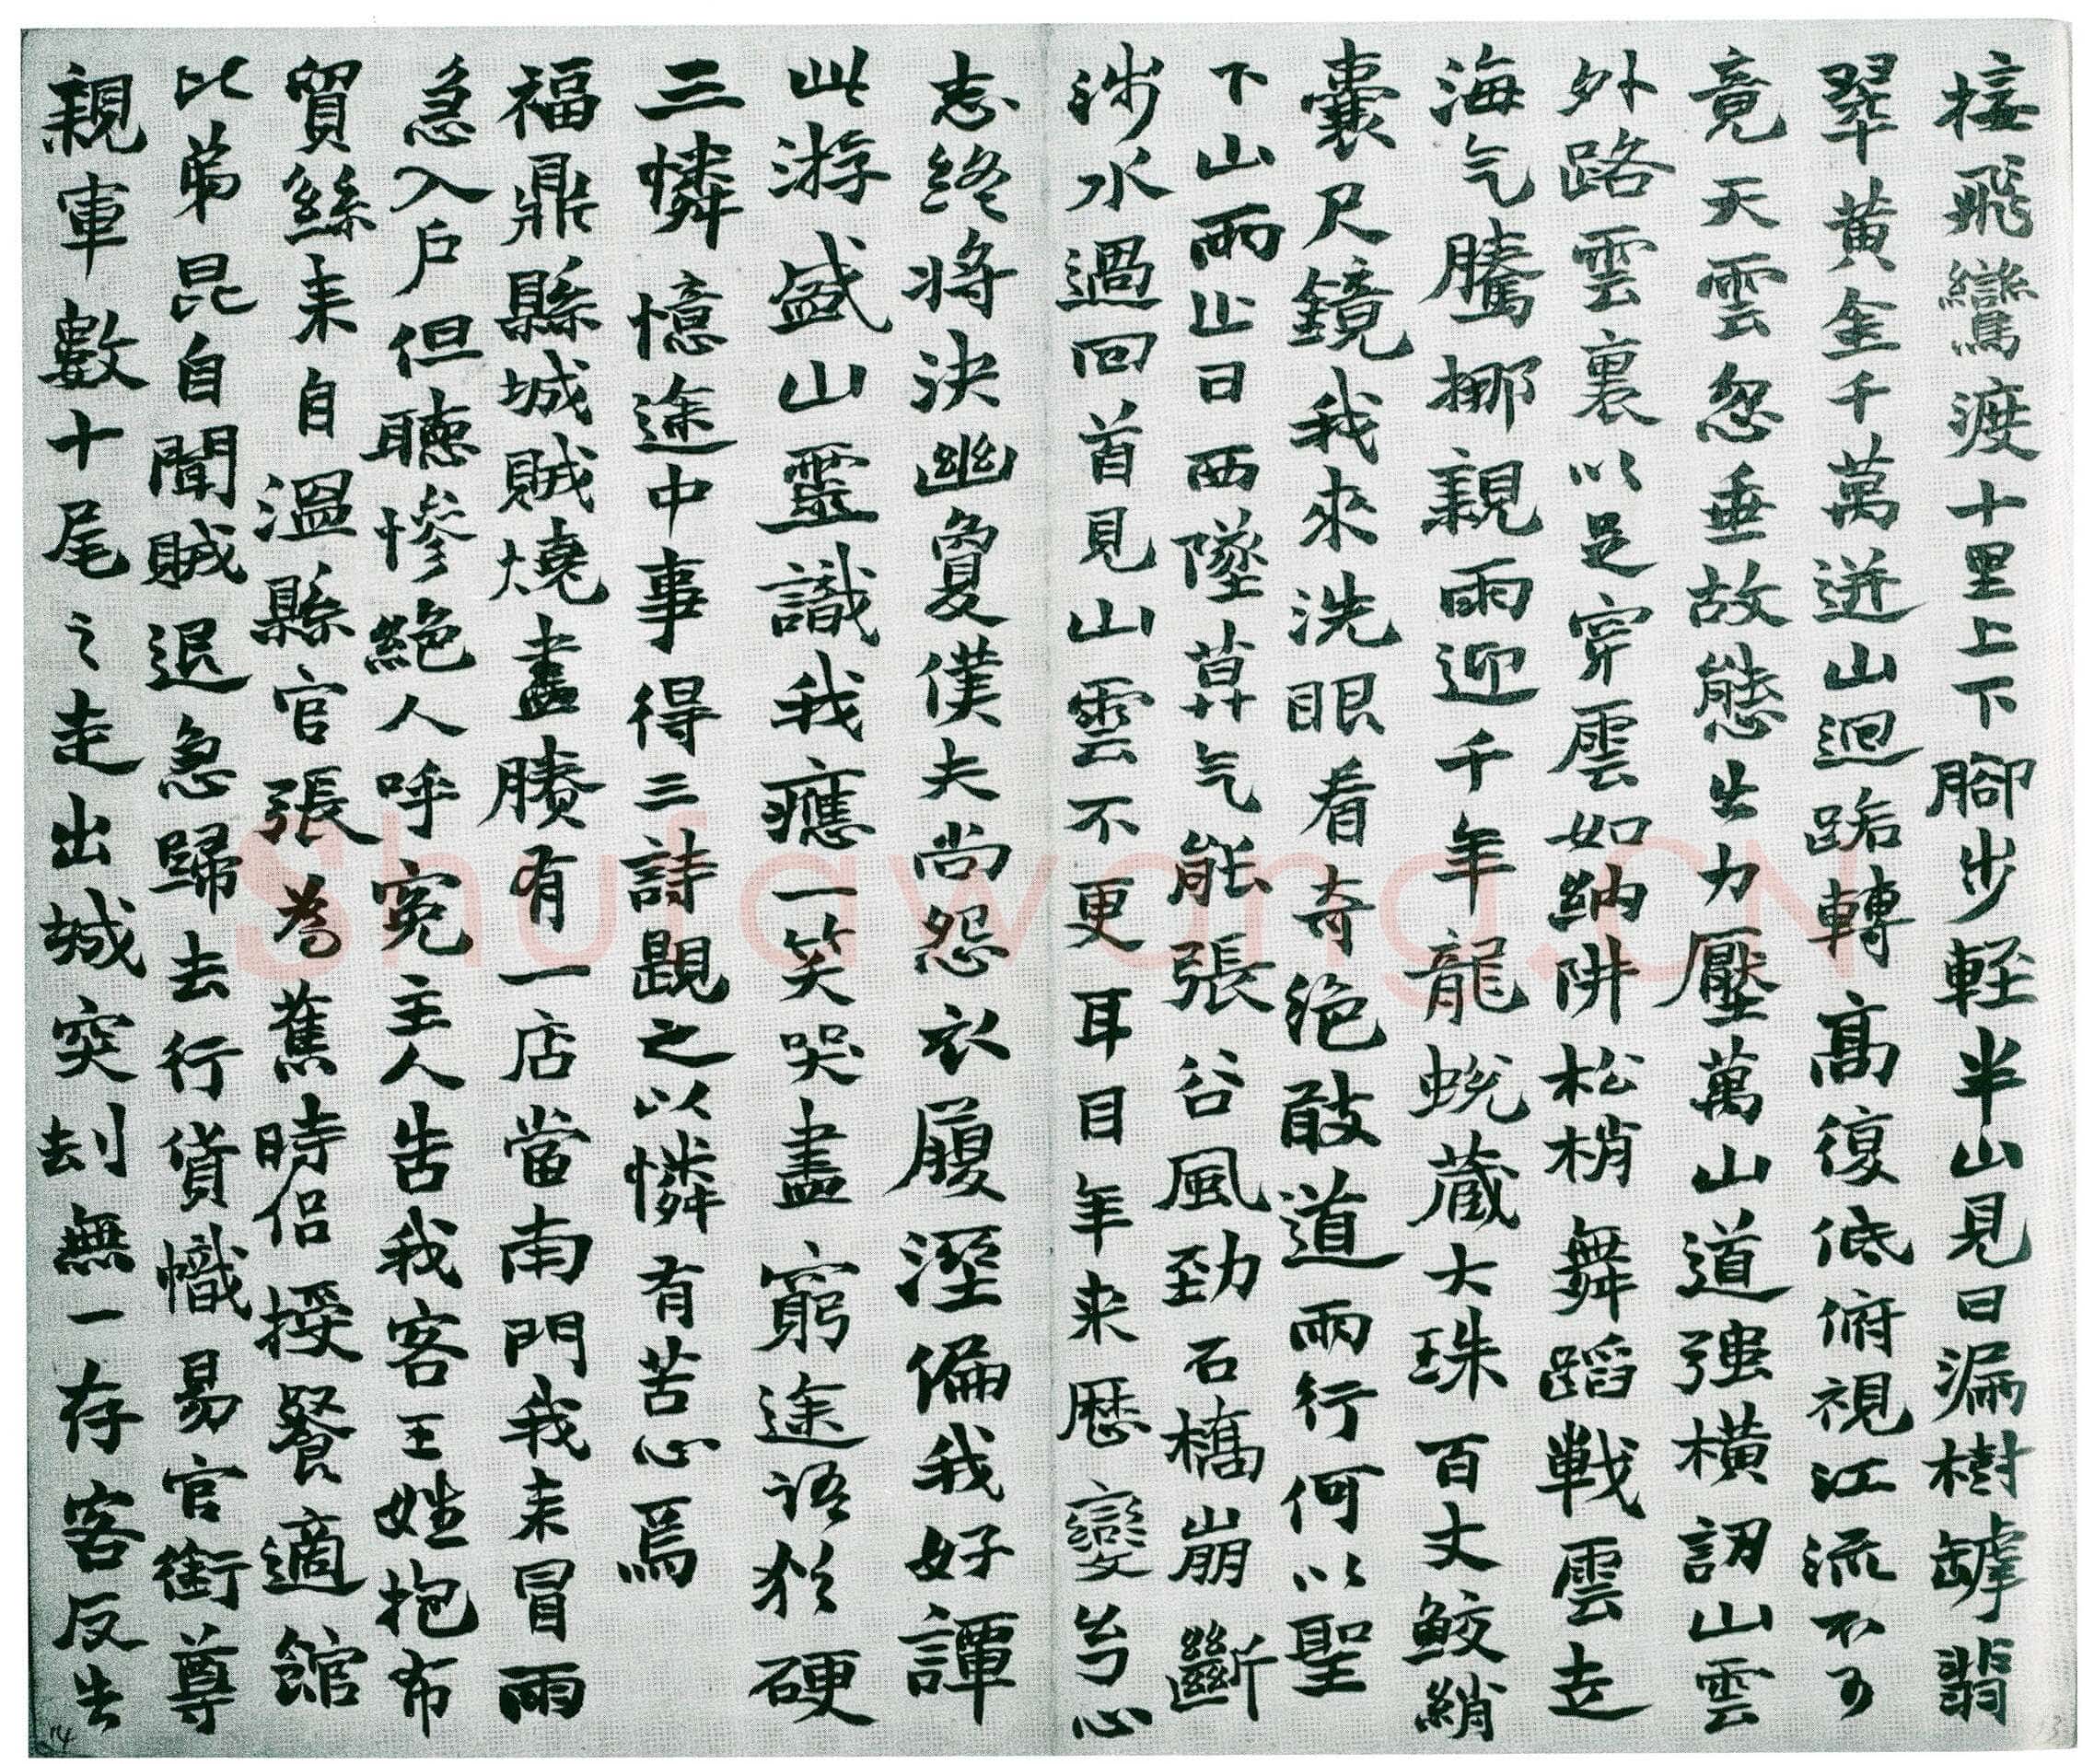 接飛鸞渡十里上下腳步輕半山見日漏樹罅翡
翠黃金千萬迸山迴路轉高復低俯視江流不可
竟天雲忽垂故態出力壓萬山道強橫訒山雲
外路雲裏以足穿雲如納阱松梢舞蹈戰雲走
海气騰挪親雨迎千年龍蛻藏大珠百丈鮫綃
囊尺鏡我來洗眼看奇絶敢道雨行何以聖
下山雨止日西墜莫气能張谷風勁石橋崩斷
涉水過回首見山雲不更耳目年来歷變兮心
志終將決幽敻僕夫尚怨衣履溼偏我好譚
此游盛山靈識我應一笑哭盡窮途語猶硬
三憐憶途中事得三詩題之以憐有苦心焉
福鼎縣城賊燒盡賸有一店當南門我来冒雨
急入戶但聽慘絶人呼寃主人告我客王姓抱布
貿絲来自溫縣官張為舊時侶授餐適館
比弟昆自聞賊退急歸去行貨幟易官銜尊
親軍數十尾之走出城突刦無一存客反出
14